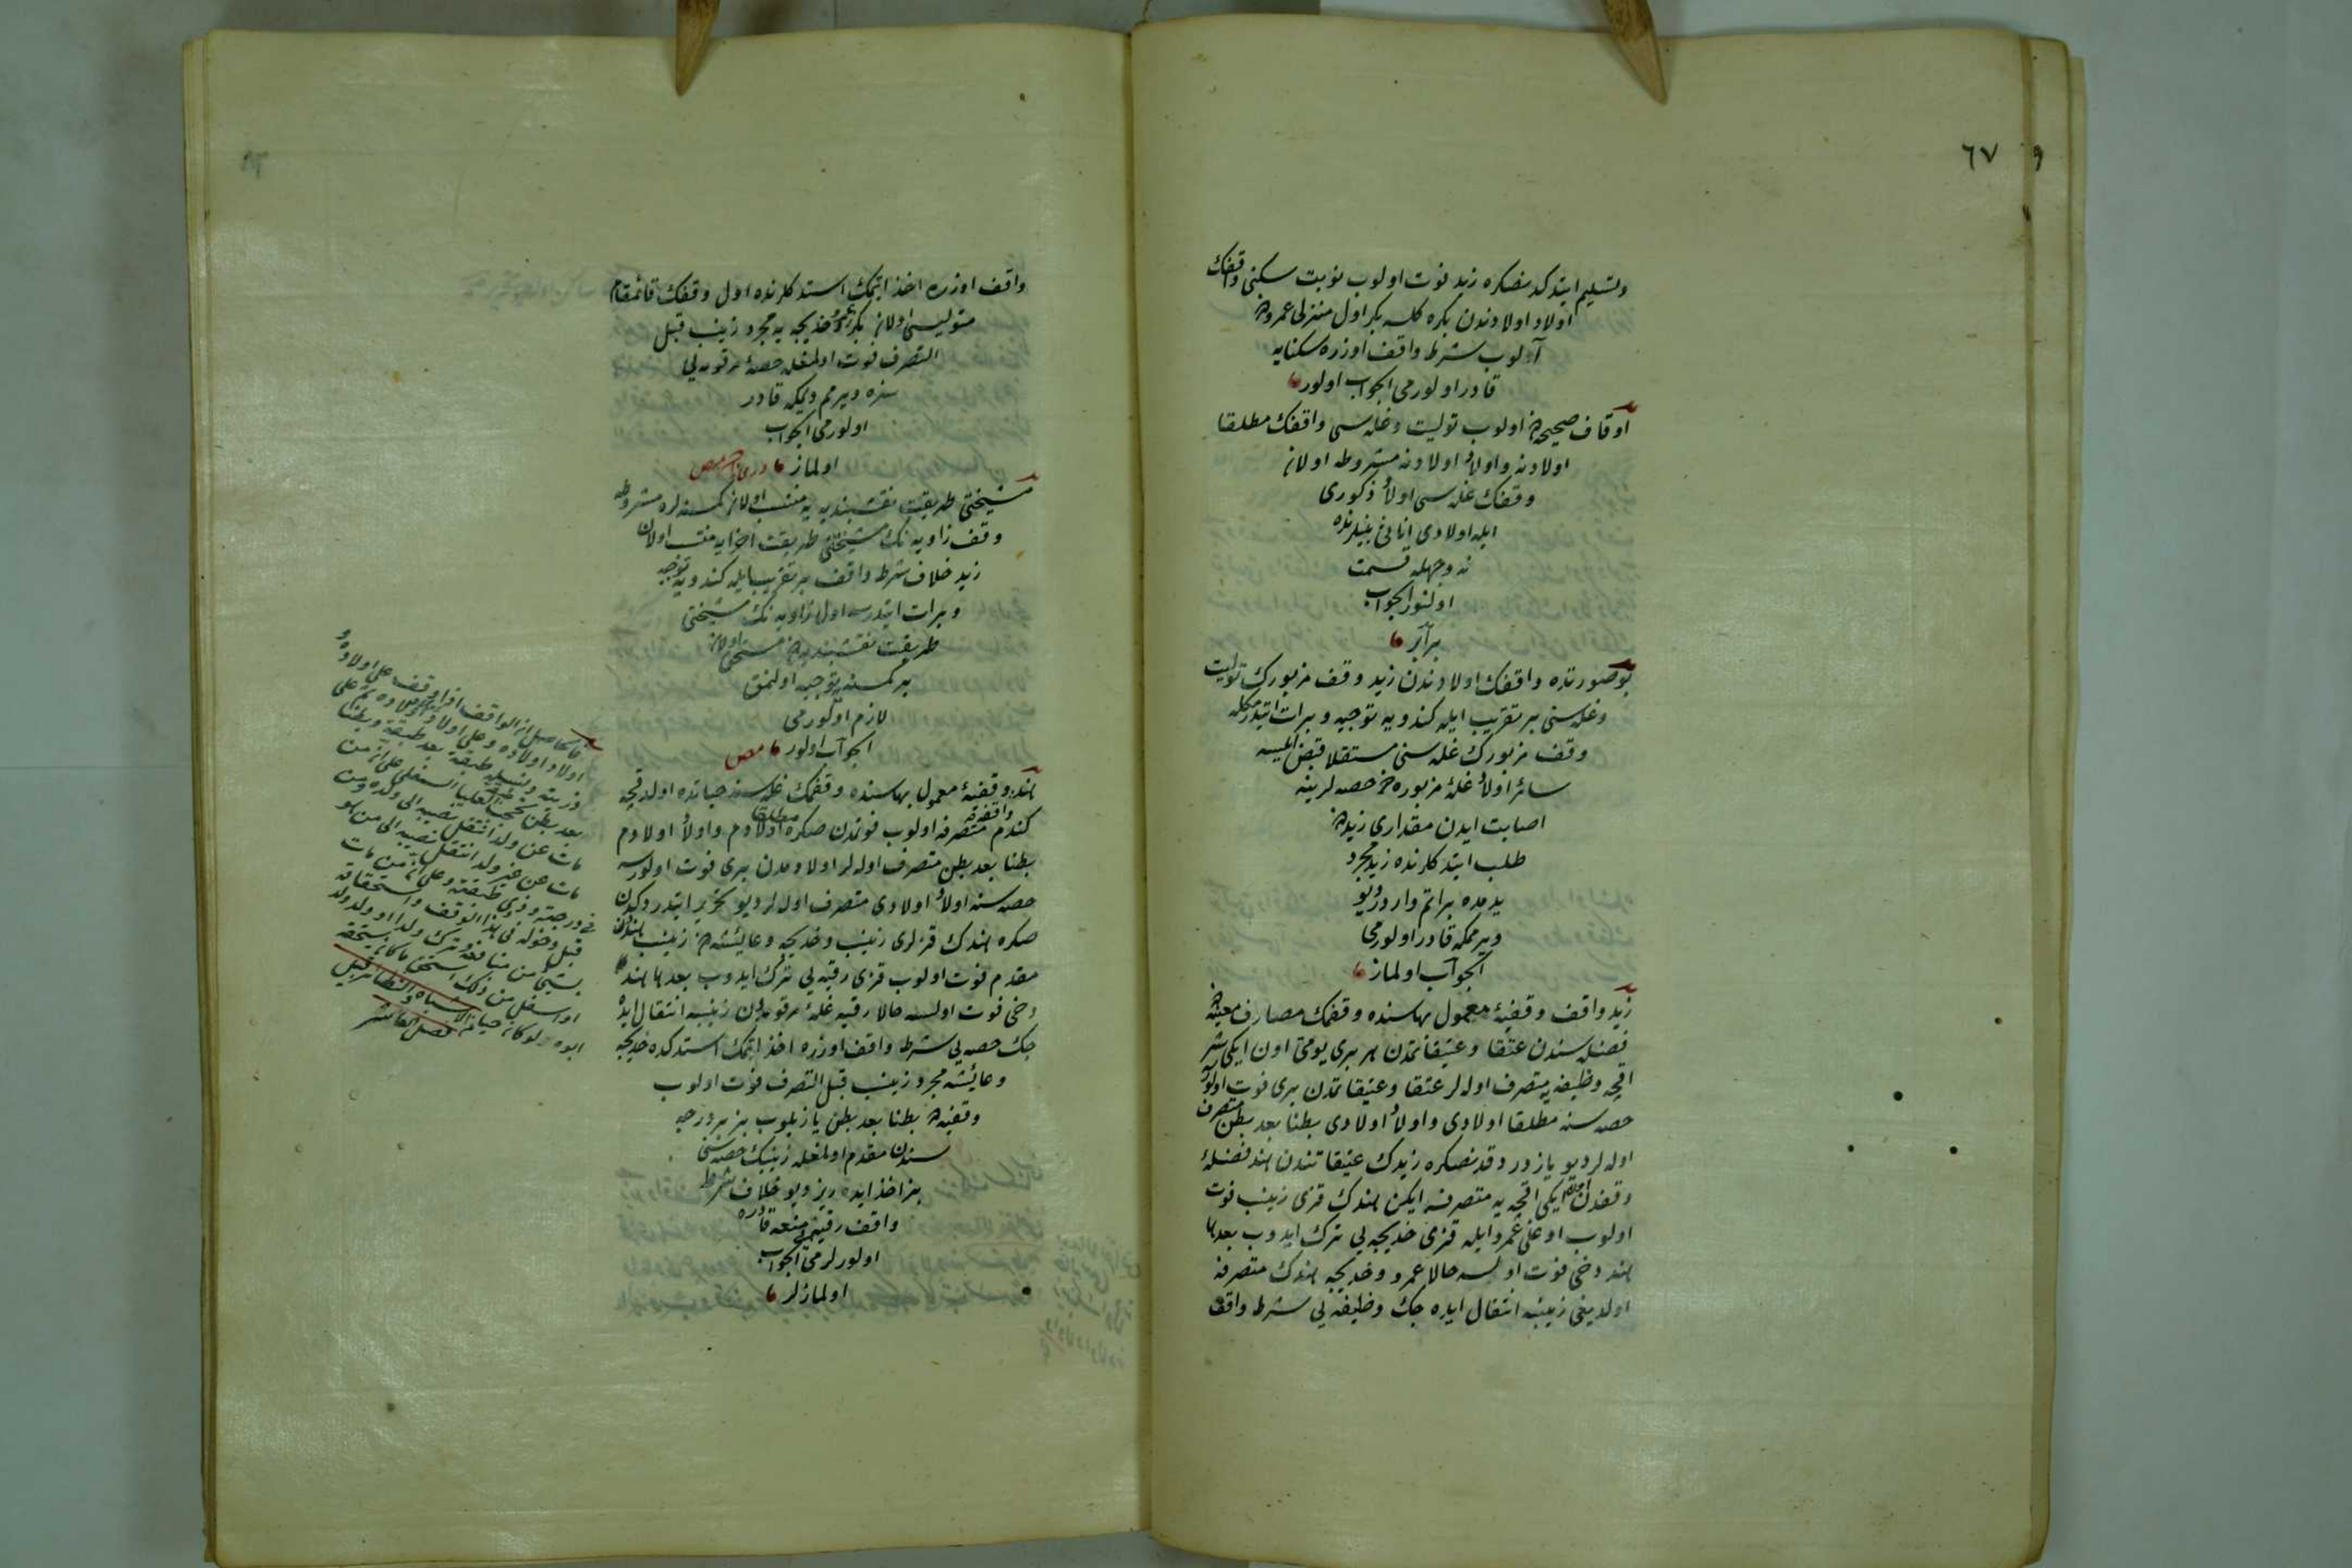 ٦٧
وتسليم ايتدكدنصكره زيد فوت اولوب نوبت سكنى واقفك
اولاد اولادندن بكره كلسه بكر اول منزلى عمرودن
آلوب شرط واقف اوزره سكنايه
قادر اولورمى الجواب اولور
اوقاف صحيحه دن اولوب توليت وغله سى واقفك مطلقا
اولادنه واولاد اولادنه مشروطه اولان
وقفك غله سى اولاد ذكورى
ايله اولادى اناثى بينلرنده
نه وجهله قسمت
اولنور الجواب
برابر
بو صورتده واقفك اولادندن زيد وقف مزبورك توليت
وغله سنى بر تقريب ايله كندويه توجيه وبرات ايتدرمكله
وقف مزبورك غله سنى مستقلا قبض ايلسه
سائر اولاد غله مزبوره دن حصه لرينه
اصابت ايدن مقدارى زيددن
طلب ايتدكلرنده زيد مجرد
يدمده براتم واردر ديو
ويرمكه قادر اولورمى
الجواب اولماز
زيد واقف وقفيه معمول بهاسنده وقفمك مصارف معينه دن
فضله سندن عتقا وعتيقاتمدن هر برى يومى اون ايكيشر
اقچه وظيفه يه متصرف اوله لر عتقا وعتيقاتمدن برى فوت اولورسه
حصه سنه مطلقا اولادى واولاد اولادى بطنا بعد بطن متصرف
اوله لر ديو يازدر وقدنصكره زيدك عتيقاتندن هند فضله
وقفدن اون ايكى اقچه يه متصرفه ايكن هندك قزى زينب فوت
اولوب اوغلى عمرو ايله قزى خديجه يى ترك ايدوب بعدها
هند دخى فوت اولسه حالا عمرو وخديجه هندك متصرفه
اولديغى زينبه انتقال ايده جك وظيفه يى شرط واقف
واقف اوزره اخذ ايتمك استدكلرنده اول وقفك قائمقام
متوليسى اولان بكر عمرو وخديجه يه مجرد زينب قبل
التصرف فوت اولمغله حصه مرقومه يى
سزه ويرمم ديمكه قادر
اولورمى الجواب
اولماز
مشيختى طريقت نقشبنديه يه منتسب اولان كمسنه لره مشروطه
وقف زاويه نك مشيختنى طريقت اخرايه منتسب اولان
زيد خلاف شرط واقف بر تقريب ايله كندويه توجيه
وبرات ايتدرسه اول زاويه نك مشيختى
طريقت نقشبنديه دن مستحق اولان
بر كمسنه يه توجيه اولنمق
لازم اولورمى
الجواب اولور
هند وقفيه معمول بهاسنده وقفمك غله سنه حياتده اولدقجه
كندم متصرفه اولوب فوتمدن صكره اولادم واولاد اولادم
بطنا بعد بطن متصرف اوله لر اولادمدن برى فوت اولورسه
حصه سنه اولاد اولادى متصرف اوله لر ديو تحرير ايتدردكدن
صكره هندك قزلرى زينب وخديجه وعائشه دن زينب هنددن
مقدم فوت اولوب قزى رقيه يى ترك ايدوب بعدها هند
دخى فوت اولسه حالا رقيه غله مرقومه دن زينبه انتقال ايده
جك حصه يى شرط واقف اوزره اخذ ايتمك استدكده خديجه
وعائشه مجرد زينب قبل التصرف فوت اولوب
وقفيه ده بطنا بعد بطن يازيلوب بز بر درجه
سندن مقدم اولمغله زينبك حصه سنى
بز اخذ ايده ريز ديو خلاف شرط
واقف رقيه يى منعه قادره
اولورلرمى الجواب
اولمازلر
حاصل ان الواقف اذا وقف على اولاده
اولاد اولاده وعلى اولاد اولاد اولاده ثم على
ذريته ونسله طبقة بعد طبقة وبطنا
بعد بطن تحجب العليا السفلى على ان من
مات عن ولد انتقل نصيبه الى ولده ومن
مات عن غير ولد انتقل نصيبه الى من هو
فى درجته وذوى طبقته وعلى ان من مات
قبل دخوله فى هذا الوقف واستحقاقه
بشئ من منافعه وترك ولدا او ولد ولد
او اسفل من ذلك استحق ما كان يستحقه
ابوه لو كان حيا